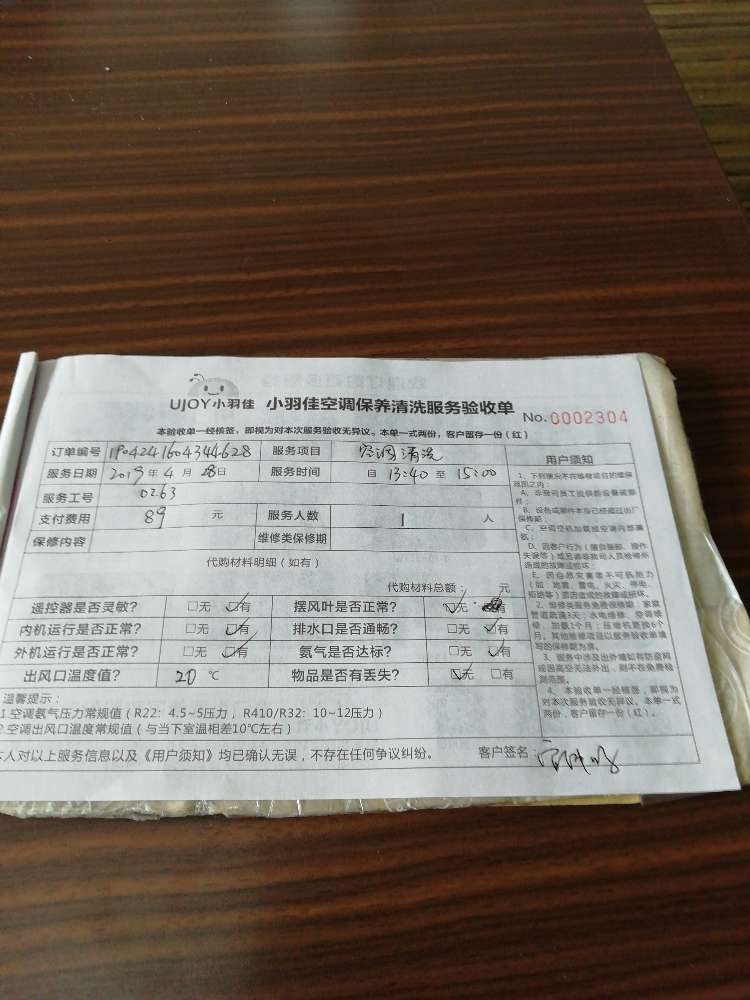 UJOY小羽佳 小羽佳空调保养清洗服务验收单 No.0002304
本验收单一经核签，即视为对本次服务验收无异议。本单一式两份，客户留存一份（红）
订单编号 190424160434628 服务项目 空调清洗
服务日期 2019年4月28日 服务时间 自 13:40 至 15:00
服务工号 0263
支付费用 89 元 服务人数 1 人
保修内容 维修类保修期
代购材料明细（如有）
代购材料总额： 元
遥控器是否灵敏？ □无 ☑有 摆风叶是否正常？ ☑无 有
内机运行是否正常？ □无 ☑有 排水口是否通畅？ □无 ☑有
外机运行是否正常？ □无 ☑有 氨气是否达标？ □无 ☑有
出风口温度值？ 20 ℃ 物品是否有丢失？ ☑无 □有
温馨提示：
1.空调氨气压力常规值（R22：4.5~5压力，R410/R32：10~12压力）
2.空调出风口温度常规值（与当下室温相差10℃左右）
本人对以上服务信息以及《用户须知》均已确认无误，不存在任何争议纠纷。 客户签名：
用户须知
1、下列情况不在维修或合约保
A、非我司员工提供的设备或部
件；
B、设备或部件本身已经超过出厂
保修期；
C、空调空机加氨或空调内部漏
氨；
D、因客户行为（擅自装卸、操作
失误等）或未请我司人员检修所
造成的故障或损坏；
E、因自然灾害等不可抗能力
（如：地震、雷电、火灾、停电、
2、维修类服务免费保修期：家装
管道疏通3天；水电维修、空调维
修、加氨1个月；压缩机更换6个
月，其他维修项目以服务验收单填
写的保修期为准。
3、服务中涉及出外墙如有防盗网
或因高空无法外出，则不在免费检
测范围。
4、本验收单一经核签，即视为
对本次服务验收无异议。本单一式
两份，客户留存一份（红）。